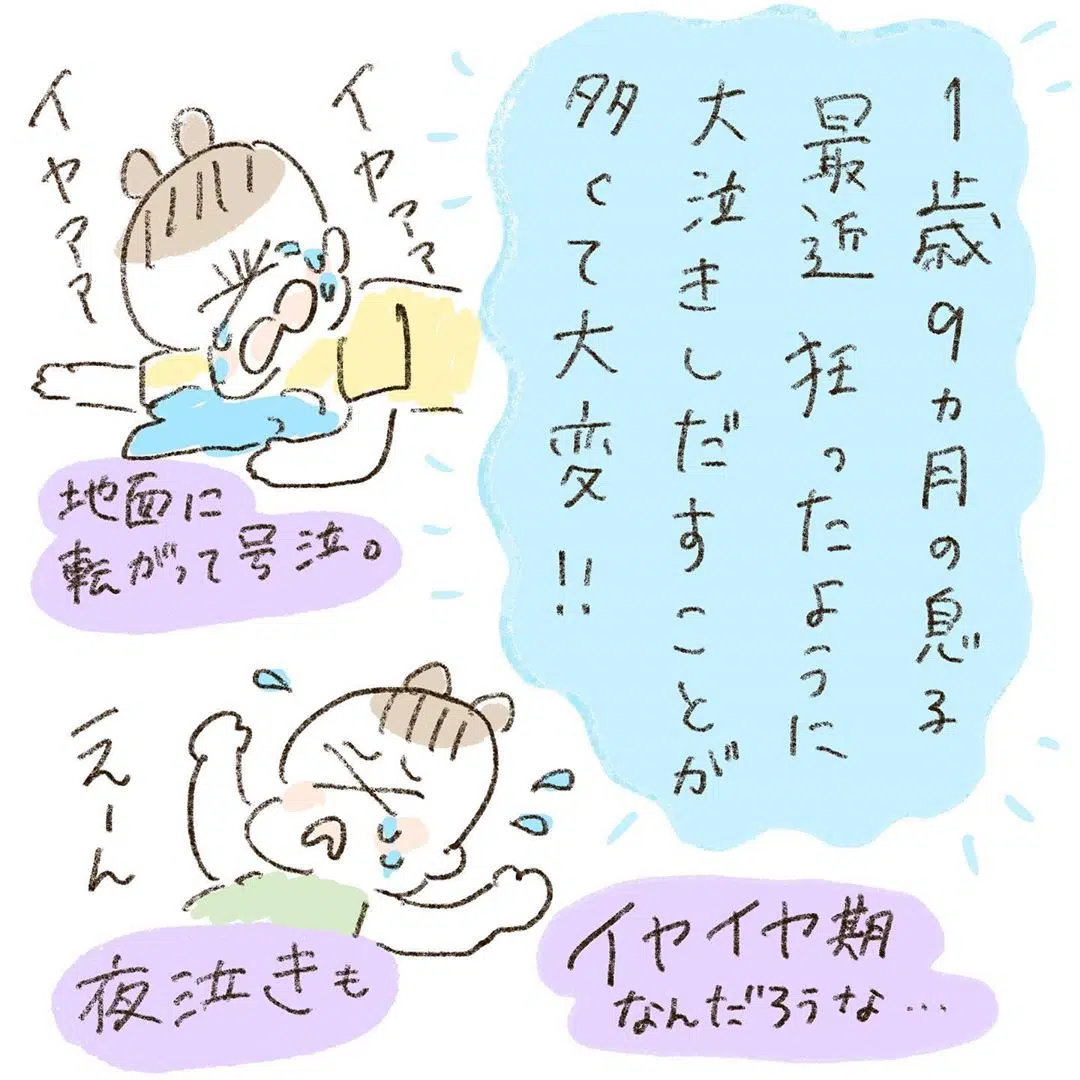 1歳9ヵ月の息子
最近 狂ったように
大泣きしだすことが
多くて大変!!
イヤァァ
イヤァァァ
地面に
転がって号泣。
えーん
夜泣きも
イヤイヤ期
なんだろうな…